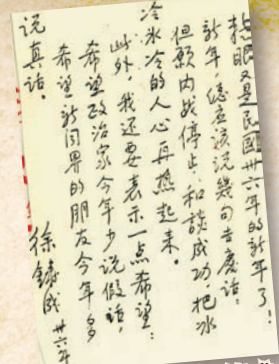 转眼又是民國卅六年的新年了！
新年，总应该说幾句吉慶话：
但願内战停止，和談成功，把冰
冷冰冷的人心再热起来。
此外，我还要表示一点希望：
希望政治家今年少说假话，
希望新闻界的朋友今年多
说真话。
徐鑄成 卅六年